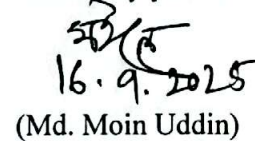 16.9.2025
(Md. Moin Uddin)